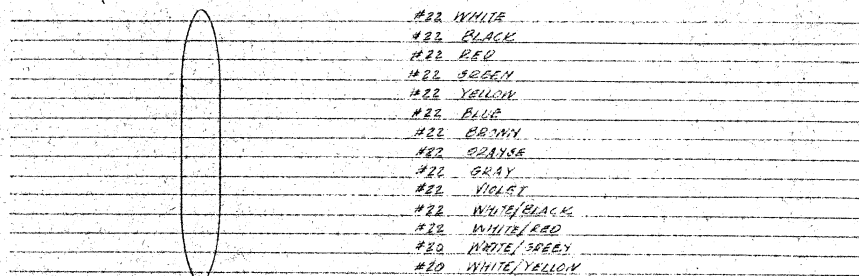 #22 WHITE
#22 BLACK
#22 RED
#22 GREEN
#22 YELLOW
#22 BLUE
#22 BROWN
#22 ORANGE
#22 GRAY
#22 VIOLET
#22 WHITE/BLACK
#22 WHITE/RED
#20 WHITE/GREEN
#20 WHITE/YELLOW